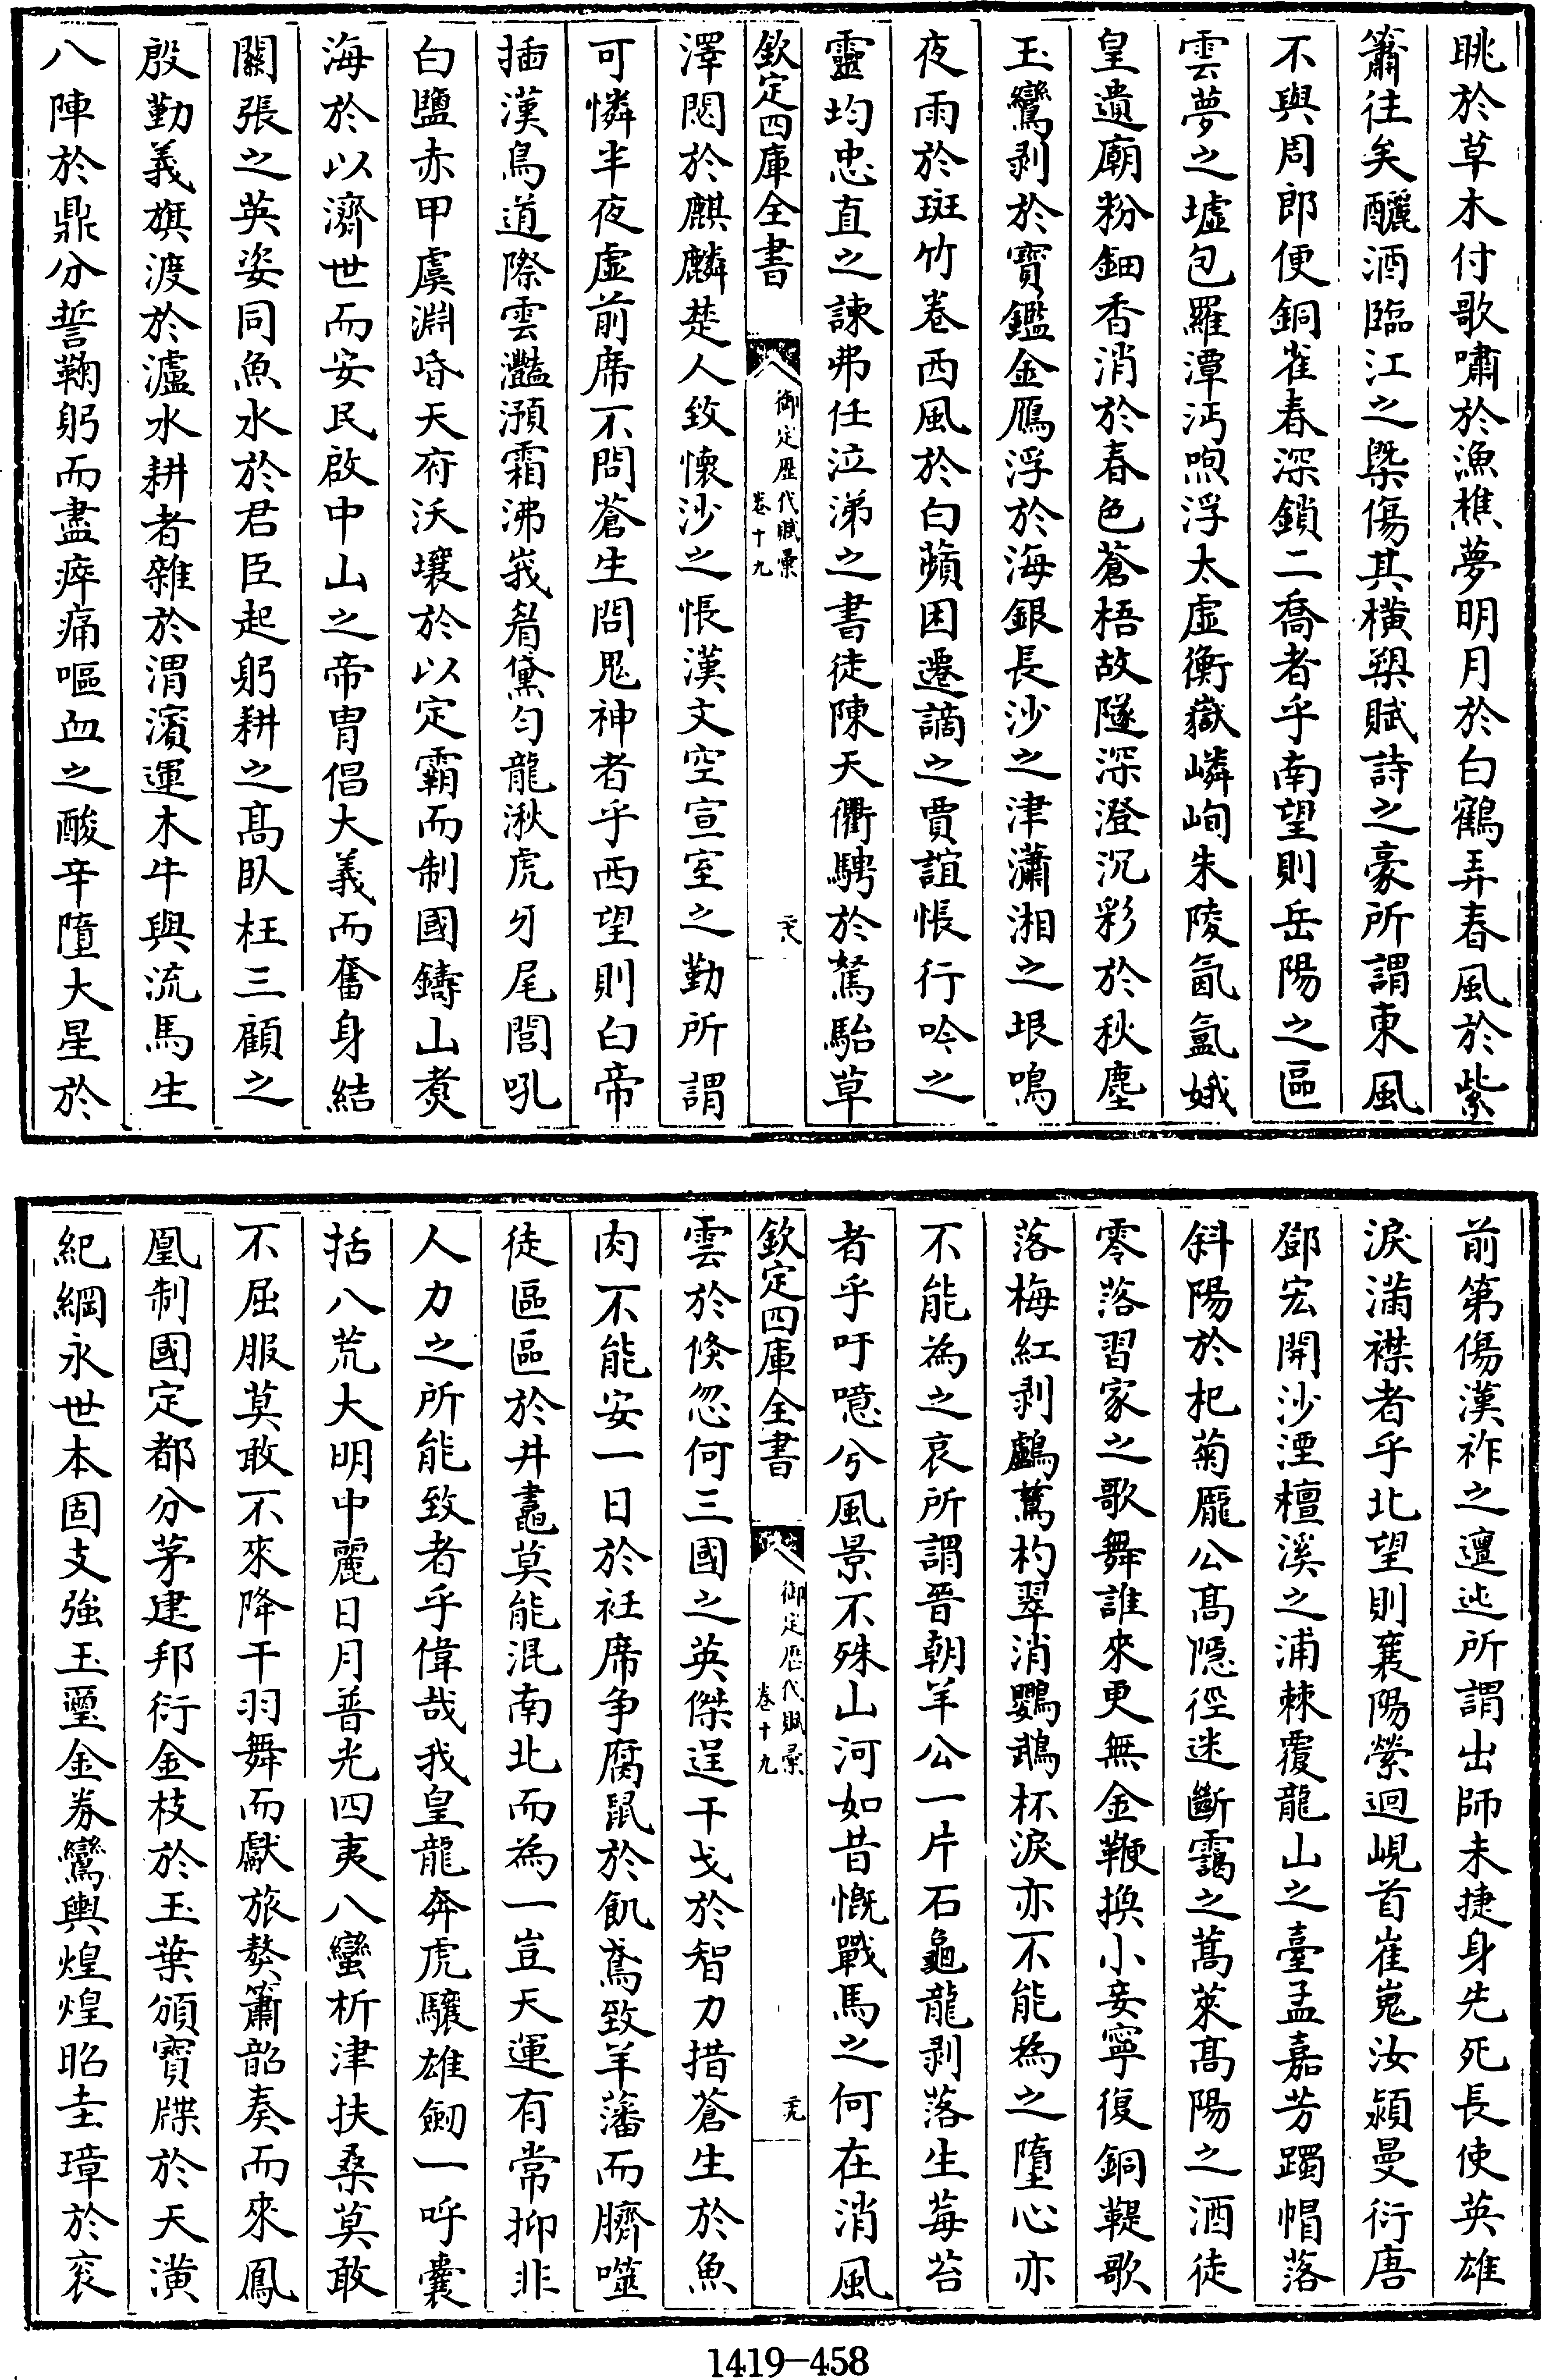 眺於草木付歌嘯於漁樵夢明月於白鶴弄春風於紫
簫往矣釃酒臨江之槩傷其橫槊賦詩之豪所謂東風
不與周郎便銅雀春深鎖二喬者乎南望則岳陽之區
雲夢之墟包羅潭沔呴浮太虛衡嶽嶙峋朱陵氤氳娥
皇遺廟粉鈿香消於春色蒼梧故隧深澄沉彩於秋塵
玉鸞剥於寳鑑金鴈浮於海銀長沙之津瀟湘之垠鳴
夜雨於斑竹卷西風於白蘋困遷謫之賈誼悵行吟之
靈均忠直之諫弗任泣涕之書徒陳天衢騁於駑駘草
欽定四庫全書
御定歷代賦彙
卷十九
二六
澤閟於麒麟楚人致懷沙之悵漢文空宣室之勤所謂
可憐半夜虛前席不問蒼生問鬼神者乎西望則白帝
插漢鳥道際雲灩澦霜沸峩眉黛勻龍湫虎牙尾閭吼
白鹽赤甲虞淵昏天府沃壤於以定霸而制國鑄山煑
海於以濟世而安民啟中山之帝胄倡大義而奮身結
關張之英姿同魚水於君臣起躬耕之髙臥枉三顧之
殷勤義旗渡於瀘水耕者雜於渭濱運木牛與流馬生
八陣於鼎分誓鞠躬而盡瘁痛嘔血之酸辛隨大星於
前第傷漢祚之邅迍所謂出師未捷身先死長使英雄
淚滿襟者乎北望則襄陽縈迴峴首崔嵬汝潁曼衍唐
鄧宏開沙湮檀溪之浦棘覆龍山之臺孟嘉芳躅帽落
斜陽於杞菊龎公髙隱徑迷斷靄之蒿萊髙陽之酒徒
零落習家之歌舞誰來更無金鞭換小妾寧復銅鞮歌
落梅紅剥鸕鶿杓翠消鸚鵡杯淚亦不能為之墮心亦
不能為之哀所謂晉朝羊公一片石龜龍剥落生莓苔
者乎吁噫兮風景不殊山河如昔慨戰馬之何在消風
欽定四庫全書
御定歷代賦彙
卷十九
二九
雲於倐忽何三國之英傑逞干戈於智力措蒼生於魚
肉不能安一日於衽席争腐鼠於飢鳶致羊藩而臍噬
徒區區於井鼃莫能混南北而為一豈天運有常抑非
人力之所能致者乎偉哉我皇龍奔虎驤雄劒一呼囊
括八荒大明中麗日月普光四夷八蠻析津扶桑莫敢
不屈服莫敢不來降干羽舞而獻旅獒簫韶奏而來鳳
凰制國定都分茅建邦衍金枝於玉葉頒寳牒於天潢
紀綱永世本固支強玉璽金券鸞輿煌煌昭圭璋於衮
1419-458